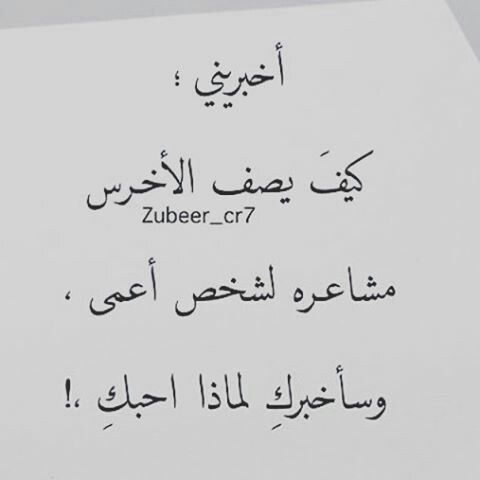 أخبريني ؛
كيفَ يصف الأخرس
Zubeer_cr7
مشاعره لشخص أعمى ،
وسأخبركِ لماذا احبكِ ،!